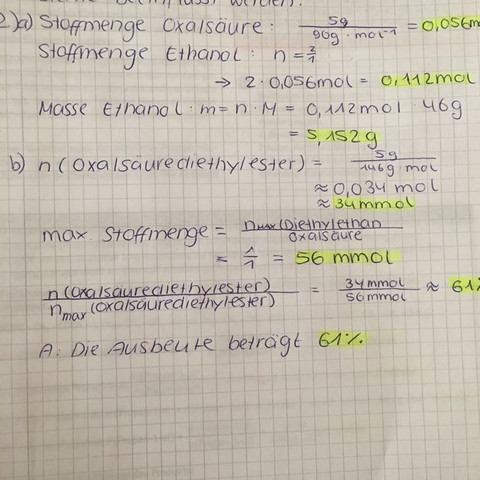 2)a) Stoffmenge Oxalsäure: 5g / 90g · mol⁻¹ = 0,056m
Stoffmenge Ethanol: n = 2/1
→ 2 · 0,056mol = 0,112mol
Masse Ethanol: m = n · M = 0,112mol · 46g
= 5,152g
b) n(Oxalsäurediethylester) = 5g / 146g · mol
≈ 0,034 mol
≈ 34mmol
max. Stoffmenge = nmax(Diethylethan / Oxalsäure
= 1/1 = 56 mmol
n(Oxalsäurediethylester) / nmax(Oxalsäurediethylester) = 34mmol / 56mmol ≈ 61%
A: Die Ausbeute beträgt 61%